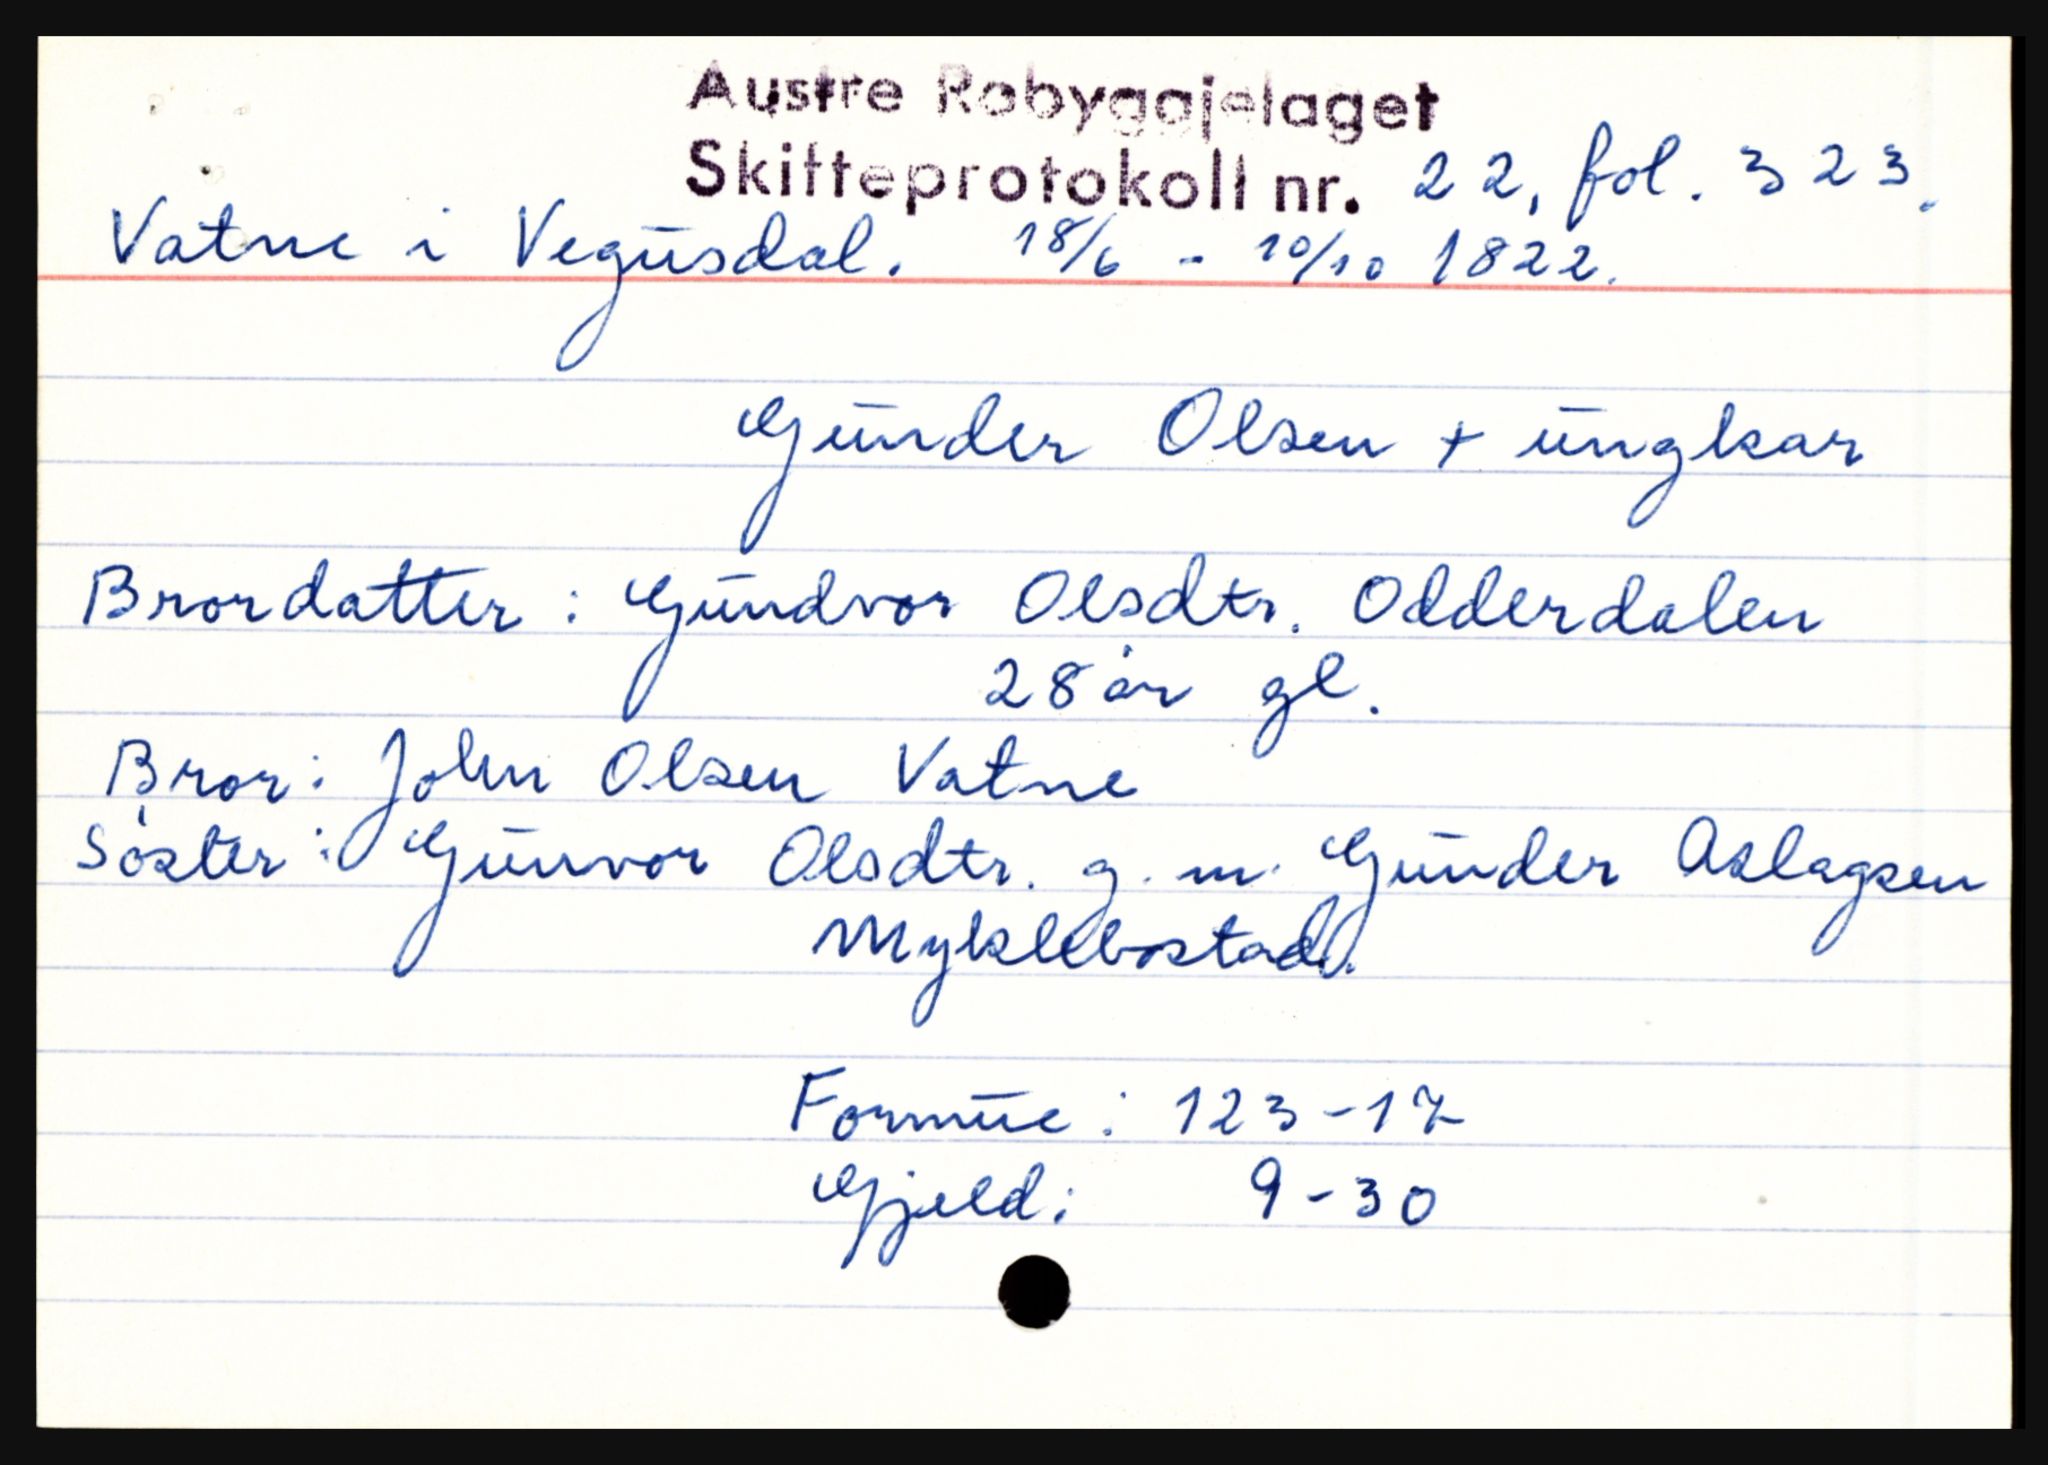 Austre Råbyggjelaget
Skifteprotokoll nr. 22, fol. 323.
Vatne i Vegusdal. 18/6 - 10/10 1822.
Gunder Olsen + ungkar
Brordatter : Gundvor Olsdtr. Odderdalen
28 år gl.
Bror : John Olsen Vatne
Søster : Gunvor Olsdtr. g. m. Gunder Aslagsen
Myklebostad.
Formue : 123-17
Gjeld : 9-30